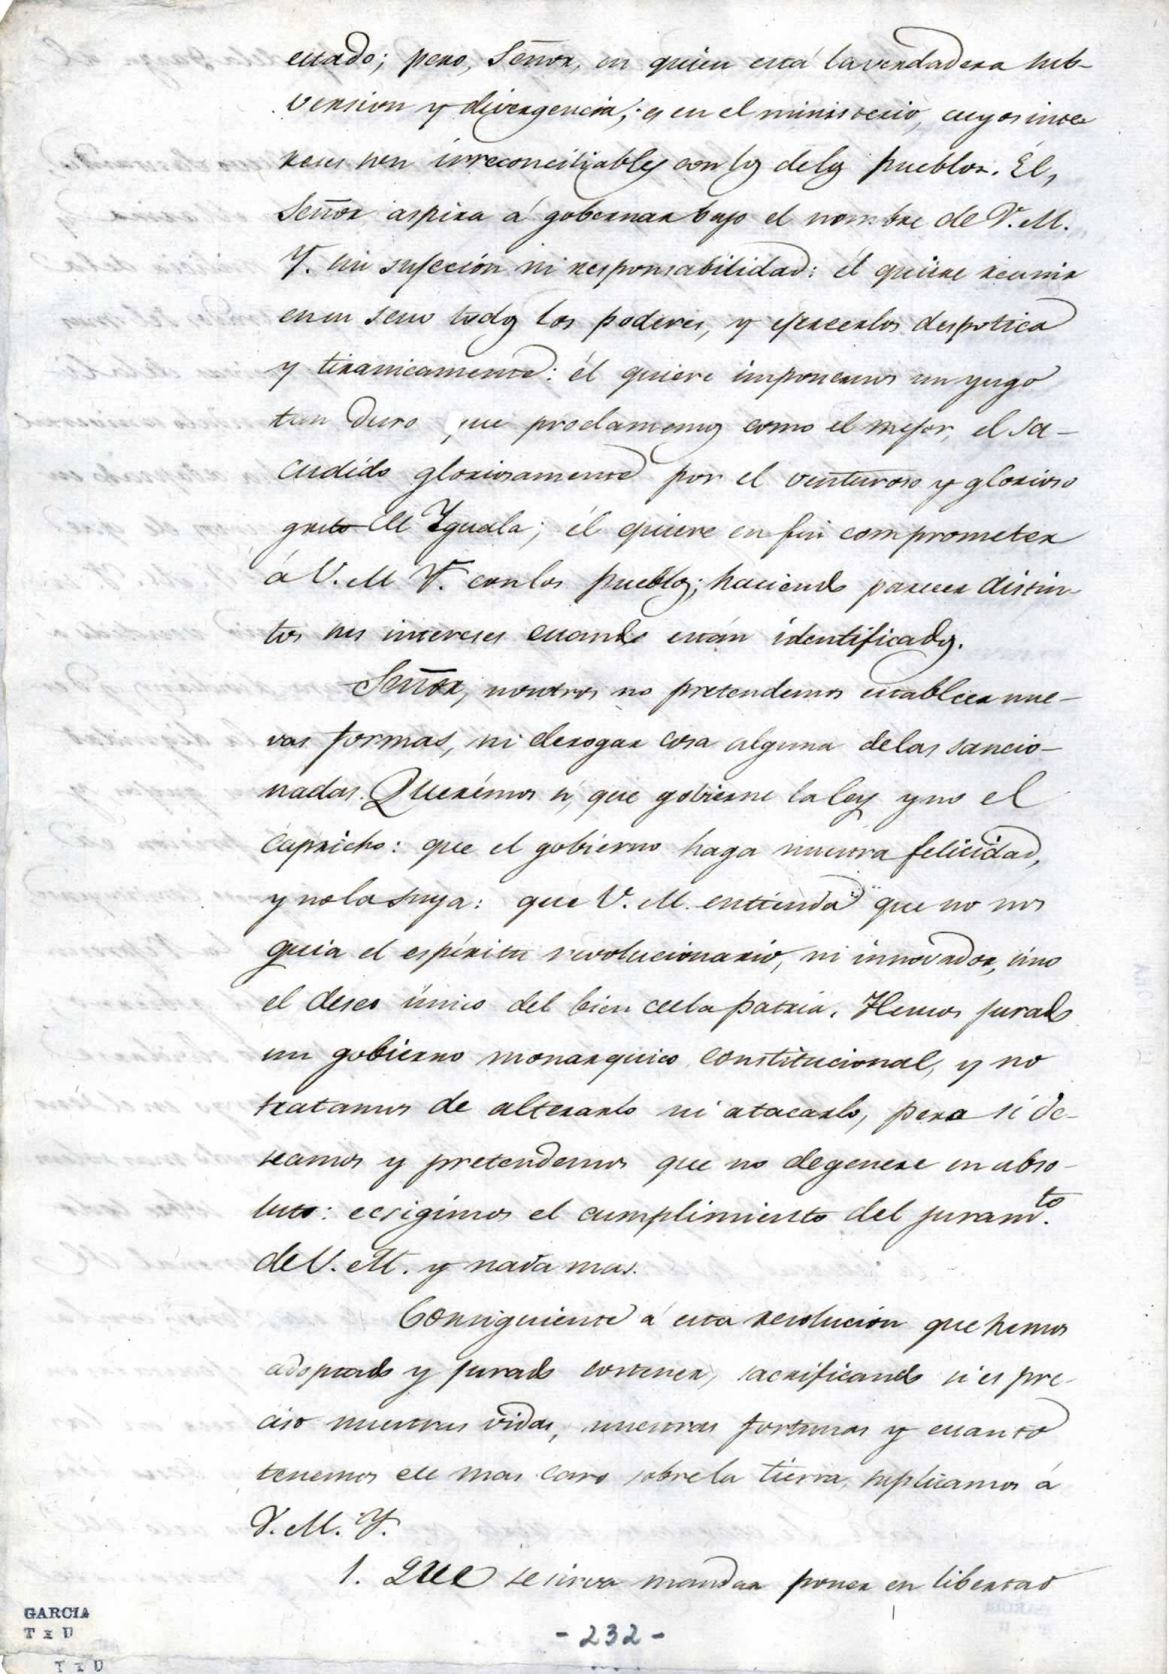 estado; pero, Señor, en quien está la verdadera sub-
version y divergencia; es en el ministerio, cuyos inte
reses son irreconciliables con los de los pueblos. Él,
Señor aspira á gobernar bajo el nombre de V. M.
Y. sin sujeción ni responsabilidad: él quiere reunir
en su seno todos los poderes, y ejercerlos despotica
y tiranicamente: él quiere imponernos un yugo
tan duro que proclamemos como el mejor, el sa-
cudido gloriosamente por el venturoso y glorioso
grito de Yguala; él quiere en fin comprometer
á V. M Y. con los pueblos; haciendo parecer distin-
tos sus intereses cuando están identificados.
Señor, nosotros no pretendemos establecer nue-
vas formas, ni derogar cosa alguna de las sancio-
nadas. Querémos si, que gobierne la ley y no el
capricho: que el gobierno haga nuestra felicidad,
y no la suya: que V. M. entienda que no nos
guia el espíritu revolucionario, ni innovador, sino
el deseo único del bien de la patria. Hemos jurado
un gobierno monarquico constitucional, y no
tratamos de alterarlo ni atacarlo, pero si de-
seamos y pretendemos que no degenere en abso-
luto: ecsigimos el cumplimiento del juramto.
de V. M. y nada mas.
Consiguiente á esta resolución que hemos
adoptado y jurado sostener, sacrificando si es pre-
ciso nuestras vidas, nuestras fortunas y cuanto
tenemos de mas caro sobre la tierra, suplicamos á
V. M. Y.
1. Que se sirva mandar poner en libertad
GARCIA
T x U
T x U
- 232 -